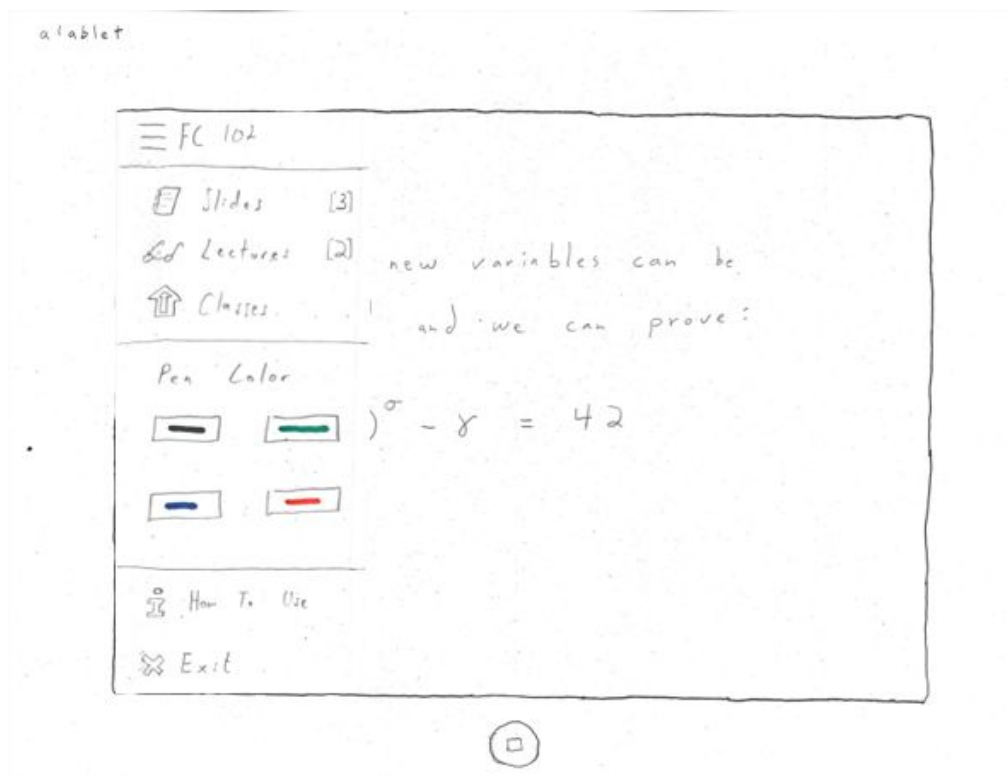 a'ablet
FC 102
Slides [3]
Lectures [2]
Classes
Pen Color
How To Use
Exit
new variables can be
and we can prove:
)^σ - γ = 42